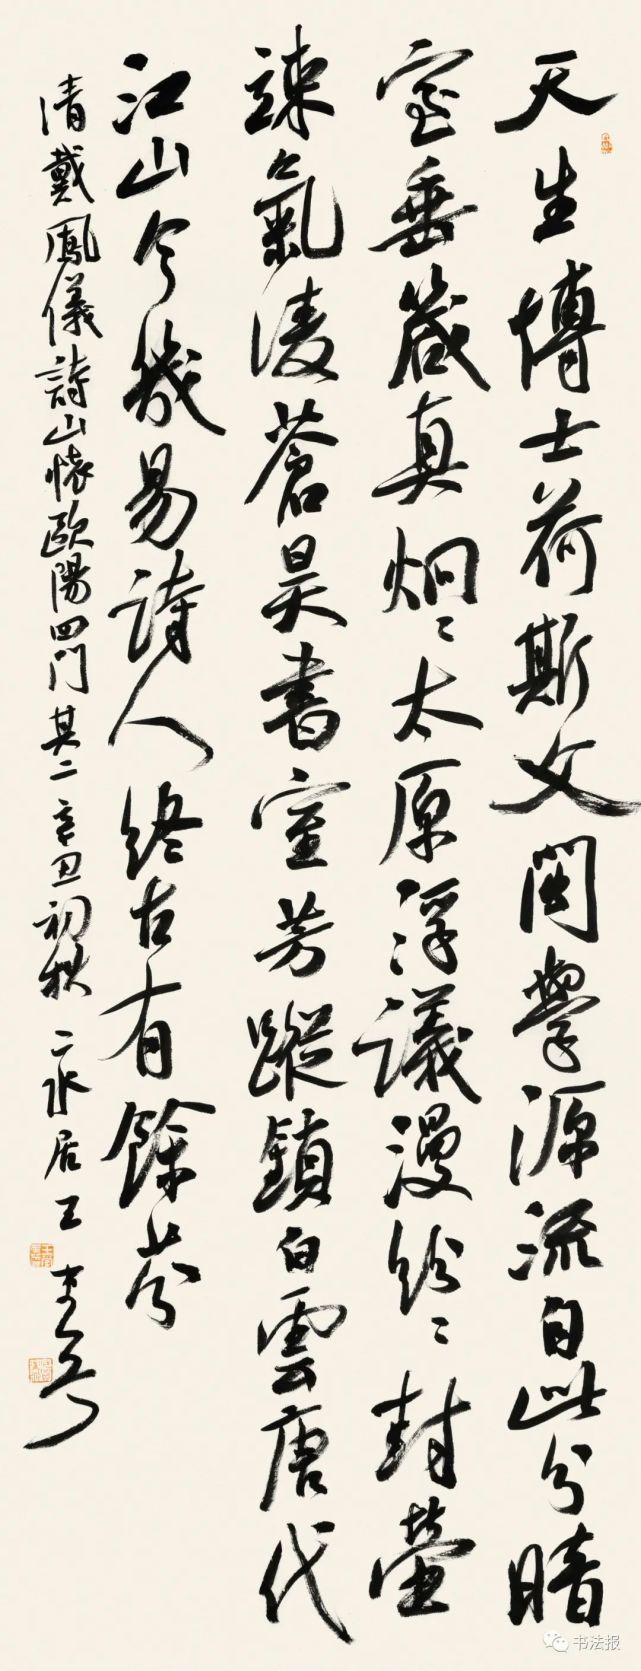 天生博士荷斯文閩學源流自此分暗
室垂箴真炯〻太原浮議漫紛〻封塋
竦氣淩蒼昊書室芳蹤鎖白雲唐代
江山今幾易詩人終古有餘芬
清戴鳳儀詩山懷歐陽四門其二辛丑初秋二水居王
书法报